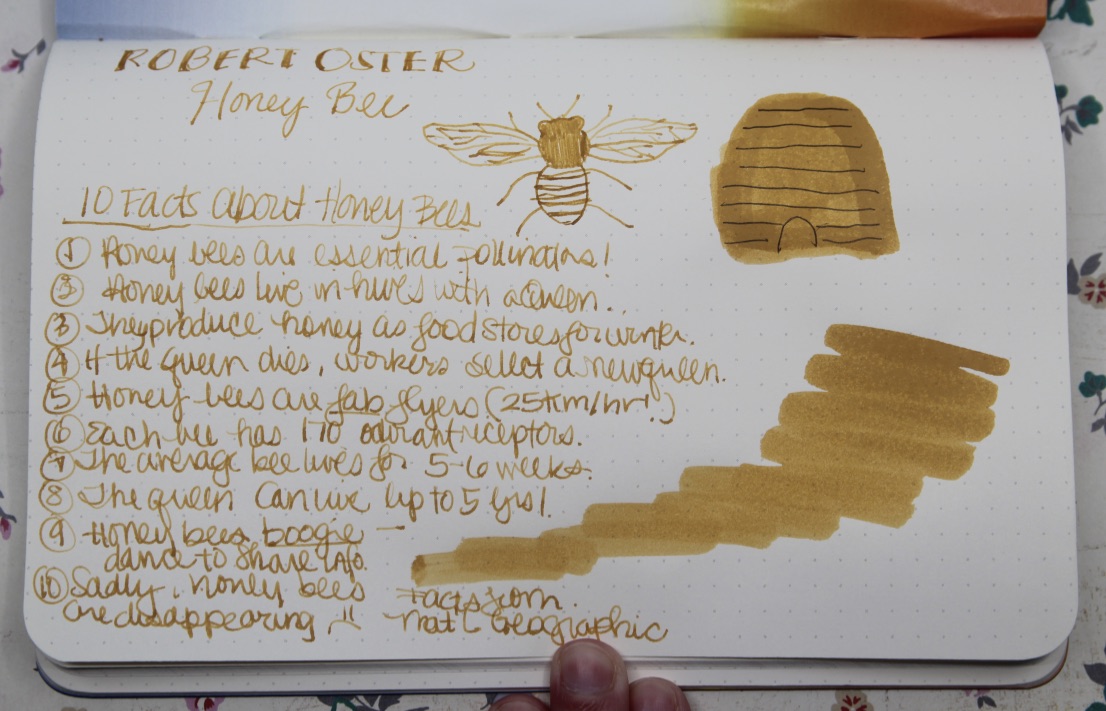 ROBERT OSTER
Honey Bee
10 Facts About Honey Bees
① Honey bees are essential pollinators!
② Honey bees live in hives with a Queen.
③ They produce honey as food stores for winter.
④ If the queen dies, workers select a new queen.
⑤ Honey bees are fab flyers (25km/hr!)
⑥ Each bee has 170 odorant receptors.
⑦ The average bee lives for 5-6 weeks.
⑧ The queen can live up to 5 yrs!
⑨ Honey bees boogie –
dance to share info.
⑩ Sadly, honey bees
are disappearing
Facts from
Nat'l Geographic